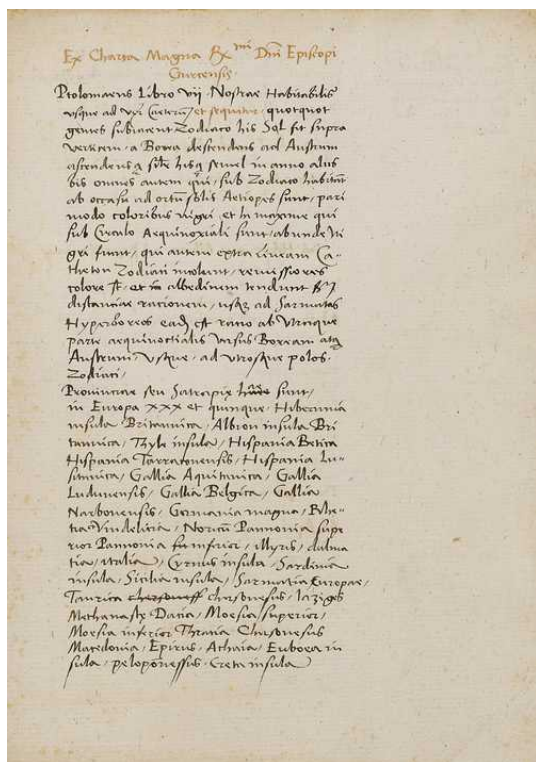 Ex Charta Magna Rx mi Dni Episcopi
Gurcensis
Ptolomaeus Libro vii Nostrae Habitabilis
usque ad et sequitur quotquot
gentes subiacent Zodiaco his Sol fit supra
verticem, a Borea descendens ad Austrum
semel in anno aliis
bis omnes autem qui, sub Zodiaco habitant
ab occasu ad ortum solis Aetiopes sunt, pari
modo coloribus nigri et hi maxime qui
sub Circulo Aequinoxiali sunt, abunde Ni
gri sunt, qui autem extra lineam Ca-
theton Zodiaci incolunt, remissiores
colore et in albedinem tendunt
distantiae rationem, usque ad Sarmatas
Hyperboreos est ratio ab utraque
parte aequinoctialis versus Boream atque
Austrum usque, ad utrosque polos
Zodiaci,
Provinciae seu Satrapiae sunt,
in Europa XXX et quinque. Hibernnia
insula Britannica, Albion insula Bri
tannica, Thyle insula, Hispania Betica
Hispania Tarraconensis, Hispania Lu-
sitanica, Gallia Aquitanica, Gallia
Ludunensis, Gallia Belgica, Gallia
Narbonensis, Germania magna, Rhe-
tia Vindelicia, Noricum Pannonia supe
rior Pannonia inferior, illyris, dalma
tia, italia, Cyrnus insula, Sardinia
insula, Sicilia insula, Sarmatia Europae,
Taurica chersonesus, Iaziges
Methanastae Dacia, Moesia superior,
Moesia inferior Thratia Chersonesus
Macedonia, Epirus, Achaia, Euboea in
sula, peloponessus, Creta insula